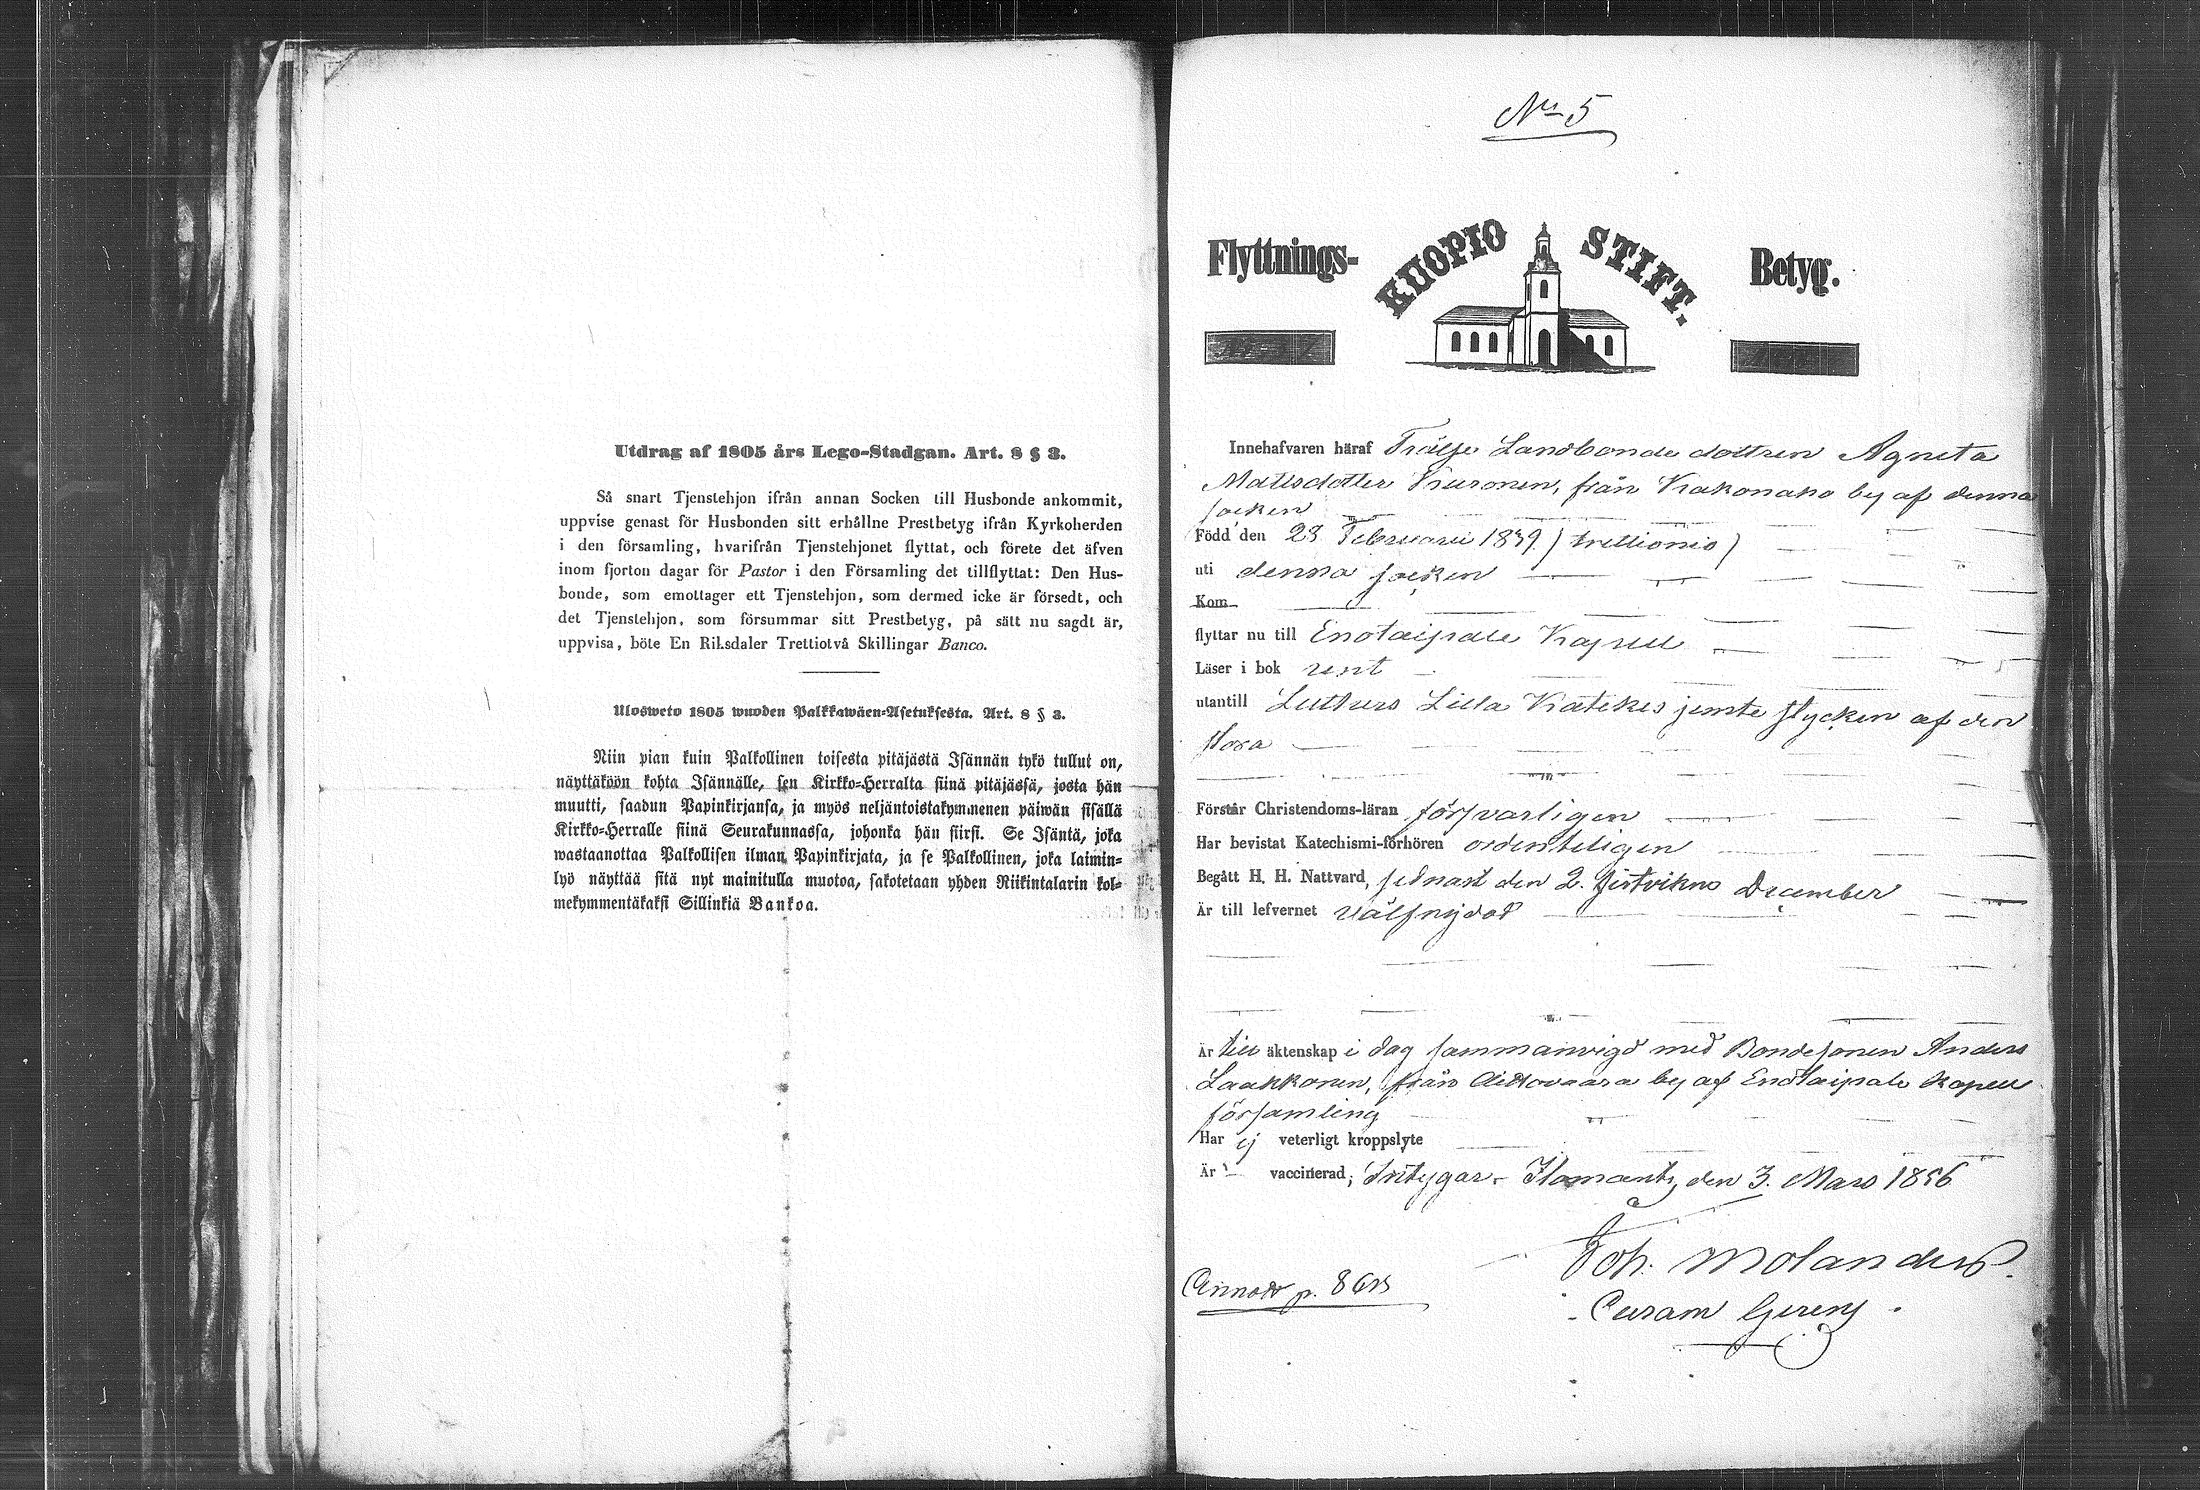 Utdrag af 1805 års Lego-Stadgan. Art. 8 § 3.
Så snart Tjenstehjon ifrån annan Socken till Husbonde ankommit,
uppvise genast för Husbonden sitt erhållne Prestbetyg ifrån Kyrkoherden
i den församling, hvarifrån Tjenstehjonet flyttat, och förete det äfven
inom fjorton dagar för Pastor i den Församling det tillflyttat: Den Hus-
bonde, som emottager ett Tjenstehjon, som dermed icke är försedt, och
det Tjenstehjon, som försummar sitt Prestbetyg, på sätt nu sagdt är,
uppvisa, böte En Riksdaler Trettiotvå Skillingar Banco.
Ulosweto 1805 wuoden Palkkawäen-Asetuksesta. Art. 8 § 3.
Niin pian kuin Palkollinen toisesta pitäjästä Isännän tykö tullut on,
näyttäköön kohta Isännälle, sen Kirkko-Herralta siinä pitäjässä, josta hän
muutti, saadun Papinkirjansa, ja myös neljäntoistakymmenen päiwän sisällä
Kirkko-Herralle siinä Seurakunnassa, johonka hän siirsi. Se Isäntä, joka
wastaanottaa Palkollisen ilman Papinkirjata, ja se Palkollinen, joka laimin-
lyö näyttää sitä nyt mainitulla muotoa, sakotetaan yhden Riikintalarin kol-
mekymmentäkaksi Sillinkiä Bankoa.
No 5
Flyttnings- KUOPIO STIFT. Betyg.
Innehafvaren häraf Frälse Landbonde dottren Agneta
Mattsdotter Kuronen, från Kakonaho by af denna
socken
Född den 23 Februarii 1839 (trettionio)
uti denna socken
Kom
flyttar nu till Enotaipale Kapell
Läser i bok rent
utantill Luthers Lilla Katekes jemte stycken af den
stora
Förstår Christendoms-läran försvarligen
Har bevistat Katechismi-förhören ordenteligen
Begått H. H. Nattvard, sednast den 2. sistvikne December
Är till lefvernet välfrejdad
Är till äktenskap i dag sammanvigd med Bondesonen Anders
Laakkonen, från by af Enotaipale Kapell
församling
Har ej veterligt kroppslyte
Är vaccinerad; Intygar Ilomants, den 3. Mars 1856
Joh. Molander.
Curam Gerens.
Annot p. 86